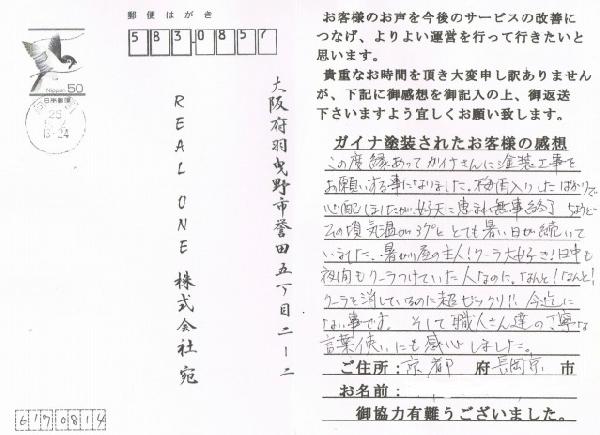 郵便はがき
583-0857
NIPPON 50
日本郵便
25
12-24
大阪府羽曳野市誉田五丁目二ー二
REAL ONE 株式会社 宛
617 0814
お客様のお声を今後のサービスの改善に
つなげ、よりよい運営を行って行きたいと
思います。
貴重なお時間を頂き大変申し訳ありません
が、下記に御感想を御記入の上、御返送
下さいますよう宜しくお願い致します。
ガイナ塗装されたお客様の感想
この度縁あってガイナさんに塗装工事を
お願いする事になりました。梅雨入りしたばかりで
心配しましたが好天に恵まれ無事終了 ちょうど
その頃気温が37℃ととても暑い日が続いて
いました。暑がり屋の主人!クーラ大好き!日中も
夜間もクーラつけていた人なのに。なんと!なんと!
クーラを消しているのに超ビックリ!! 今迄に
ない事です。そして職人さん達の丁寧な
言葉使いにも感心しました。
ご住所:京都府長岡京市
お名前:
御協力有難うございました。